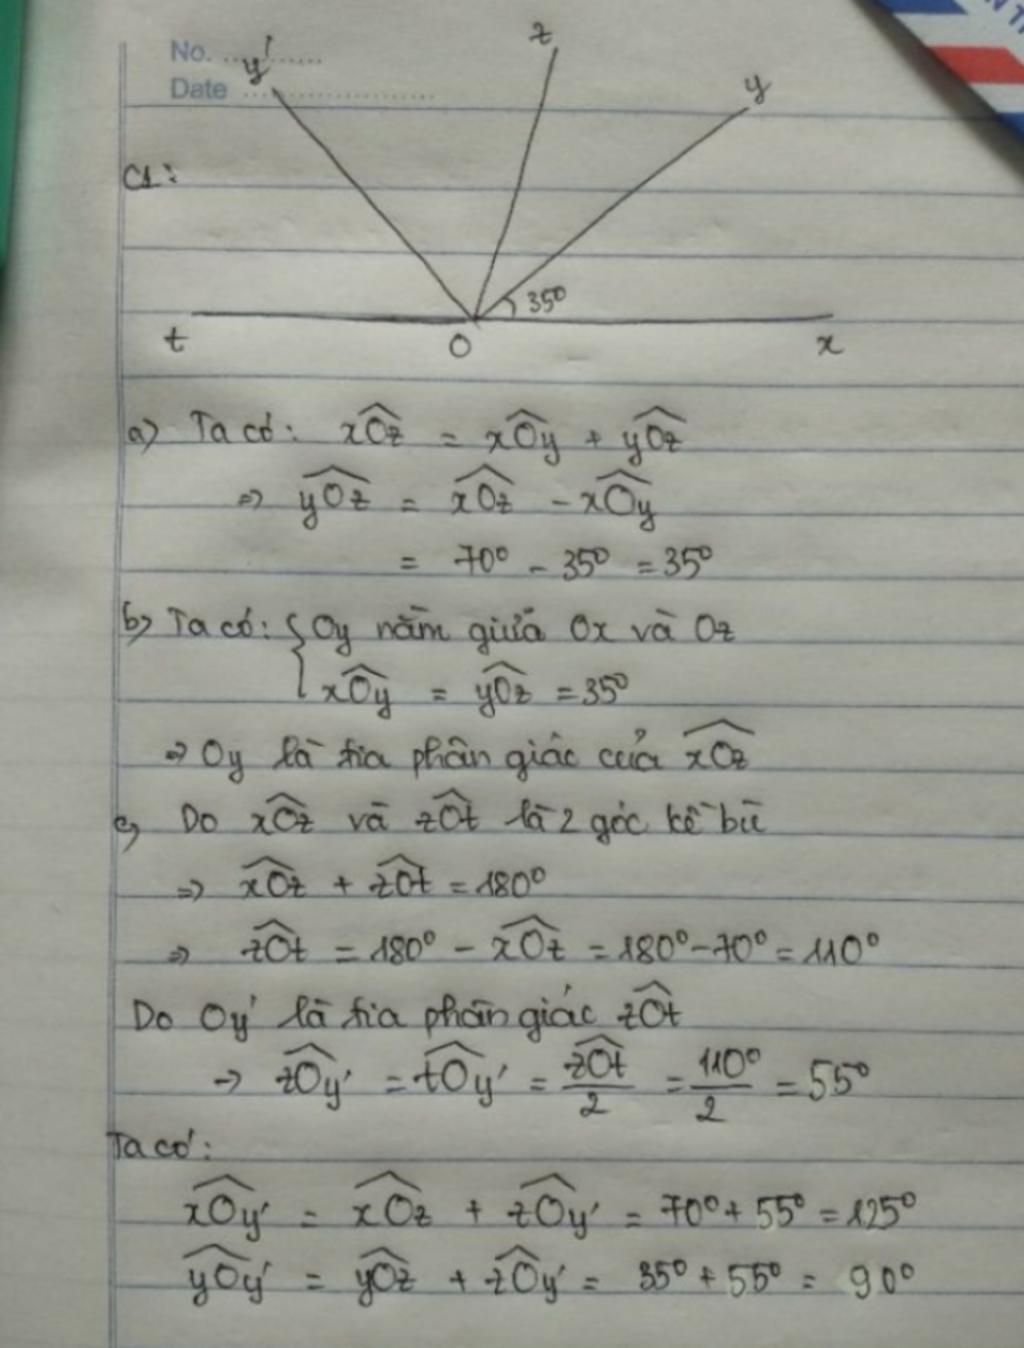 No. ..........
Date ..................
y'
z
y
C1:
35°
t
O
x
a) Ta có: xOz = xOy + yOz
=> yOz = xOz - xOy
= 70° - 35° = 35°
b) Ta có: { Oy nằm giữa Ox và Oz
xOy = yOz = 35°
=> Oy là tia phân giác của xOz
c) Do xOz và zOt là 2 góc kề bù
=> xOz + zOt = 180°
=> zOt = 180° - xOz = 180° - 70° = 110°
Do Oy' là tia phân giác zOt
-> zOy' = tOy' = zOt/2 = 110°/2 = 55°
Ta có:
xOy' = xOz + zOy' = 70° + 55° = 125°
yOy' = yOz + zOy' = 35° + 55° = 90°